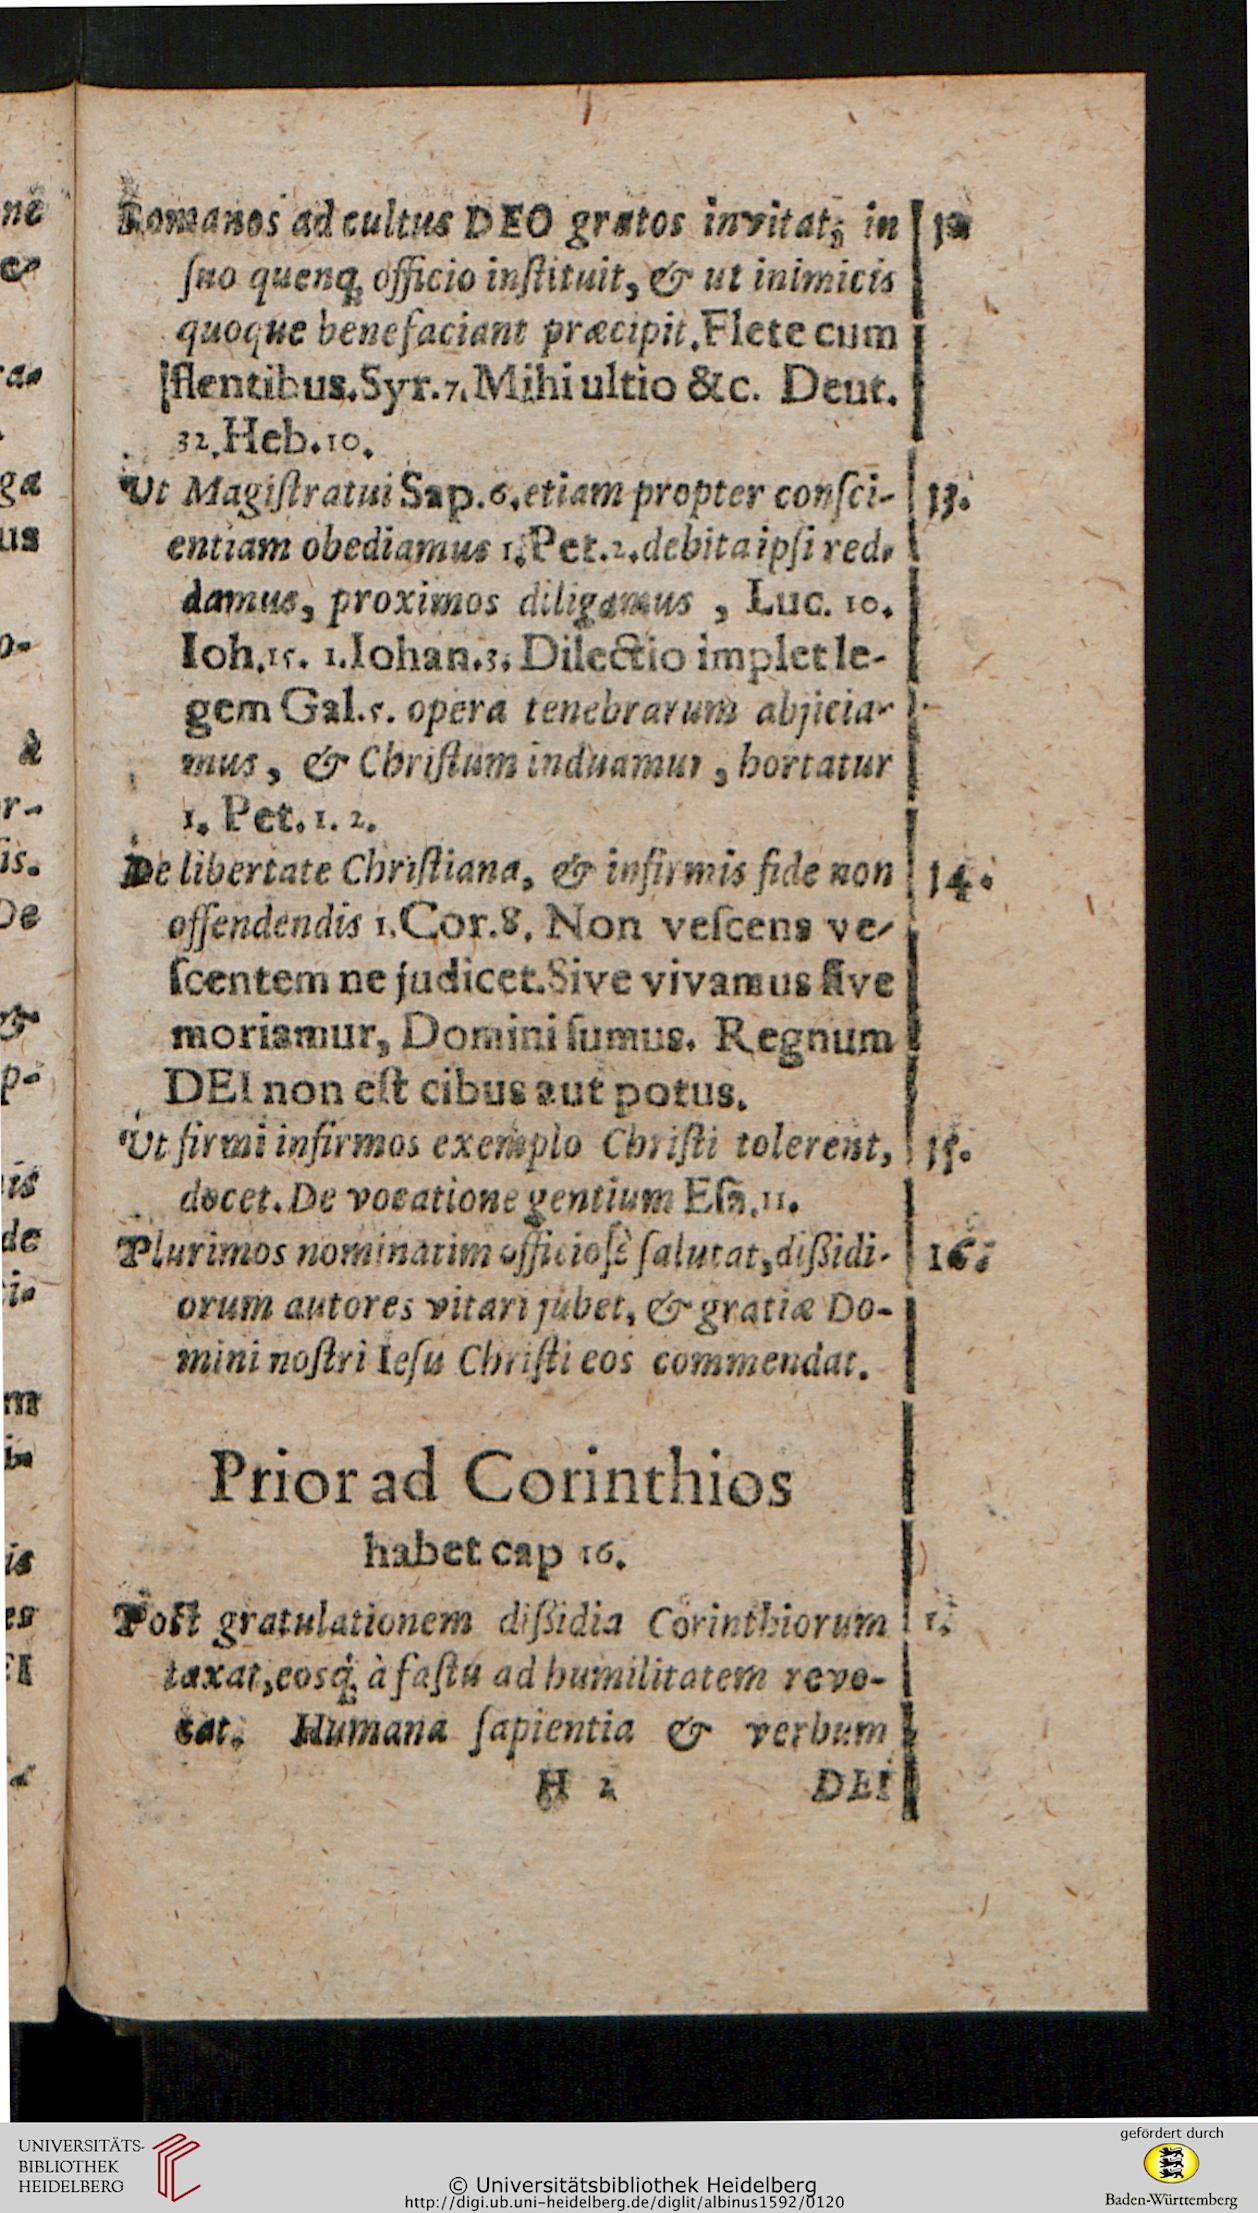 Romanos ad cultus DEO gratos invitat; in
ſuo quenq; officio inſtituit, & ut inimicis
quoque benefaciant præcipit. Flete cum
flentibus. Syr. 7. Mihi ultio &c. Deut.
32. Heb. 10.
Ut Magiſtratui Sap. 6. etiam propter conſci- 13.
entiam obediamus 1. Pet. 2. debita ipſi red-
damus, proximos diligamus, Luc. 10.
Ioh. 15. 1. Iohan. 3. Dilectio implet le-
gem Gal. 5. opera tenebrarum abjicia-
mus, & Chriſtum induamur, hortatur
1. Pet. 1. 2.
De libertate Chriſtiana, & infirmis fide non 14.
offendendis 1. Cor. 8. Non veſcens ve-
ſcentem ne judicet. Sive vivamus ſive
moriamur, Domini ſumus. Regnum
DEI non eſt cibus aut potus.
Ut firmi infirmos exemplo Chriſti tolerent, 15.
docet. De vocatione gentium Eſa. 11.
Plurimos nominatim officioſè ſalutat, diſſidi- 16.
orum autores vitari jubet, & gratiæ Do-
mini noſtri Ieſu Chriſti eos commendat.
Prior ad Corinthios
habet cap 16.
Poſt gratulationem diſſidia Corinthiorum 1.
taxat, eosq; à faſtu ad humilitatem revo-
cat. Humana ſapientia & verbum
H 2 DEI
UNIVERSITÄTS-
BIBLIOTHEK
HEIDELBERG
© Universitätsbibliothek Heidelberg
http://digi.ub.uni-heidelberg.de/diglit/albinus1592/0120
gefördert durch
Baden-Württemberg